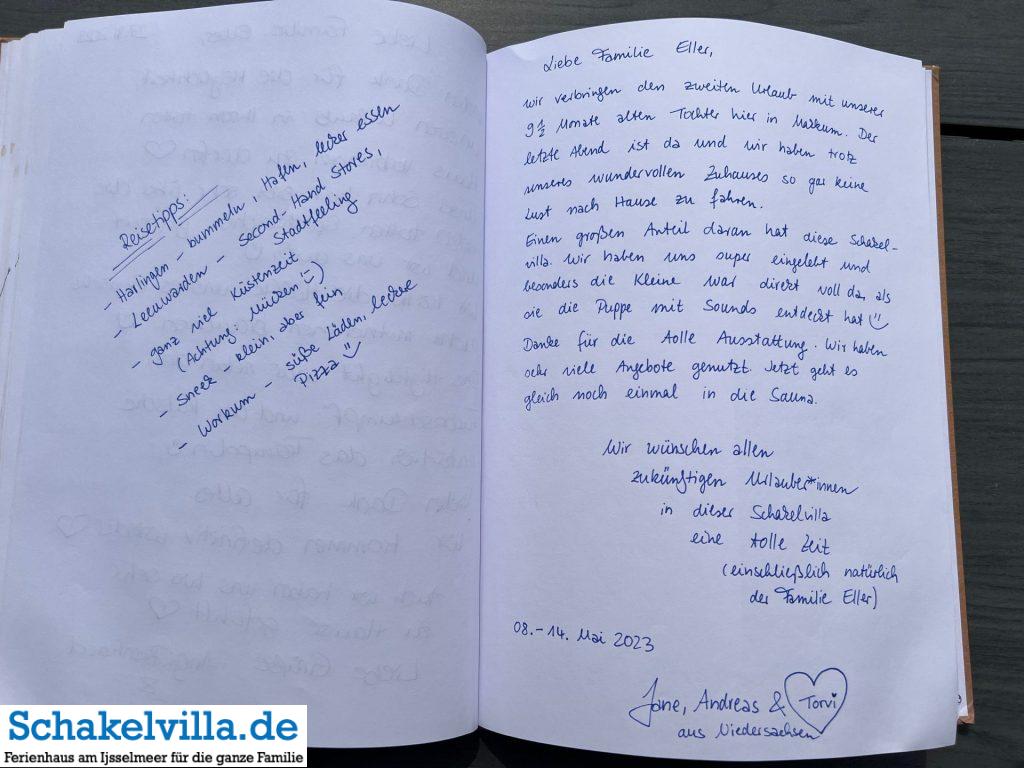 Reisetipps:
- Harlingen - bummeln, Hafen, lecker essen
- Leeuwarden - Second-Hand Stores,
Stadtfeeling
- ganz viel Küstenzeit
(Achtung: Mücken)
- Sneek - klein, aber fein
- Workum - süße Läden, leckre
Pizza
Liebe Familie Eller,
wir verbringen den zweiten Urlaub mit unserer
9 1/2 Monate alten Tochter hier in Makkum. Der
letzte Abend ist da und wir haben trotz
unseres wundervollen Zuhauses so gar keine
Lust nach Hause zu fahren.
Einen großen Anteil daran hat diese Schakel-
villa. Wir haben uns super eingelebt und
besonders die Kleine war direkt voll da, als
sie die Puppe mit Sounds entdeckt hat
Danke für die tolle Ausstattung. Wir haben
sehr viele Angebote genutzt. Jetzt geht es
gleich noch einmal in die Sauna.
Wir wünschen allen
zukünftigen Urlauber*innen
in dieser Schakelvilla
eine tolle Zeit
(einschließlich natürlich
der Familie Eller)
08.-14. Mai 2023
Jane, Andreas & Torvi
aus Niedersachsen
Schakelvilla.de
Ferienhaus am Ijsselmeer für die ganze Familie